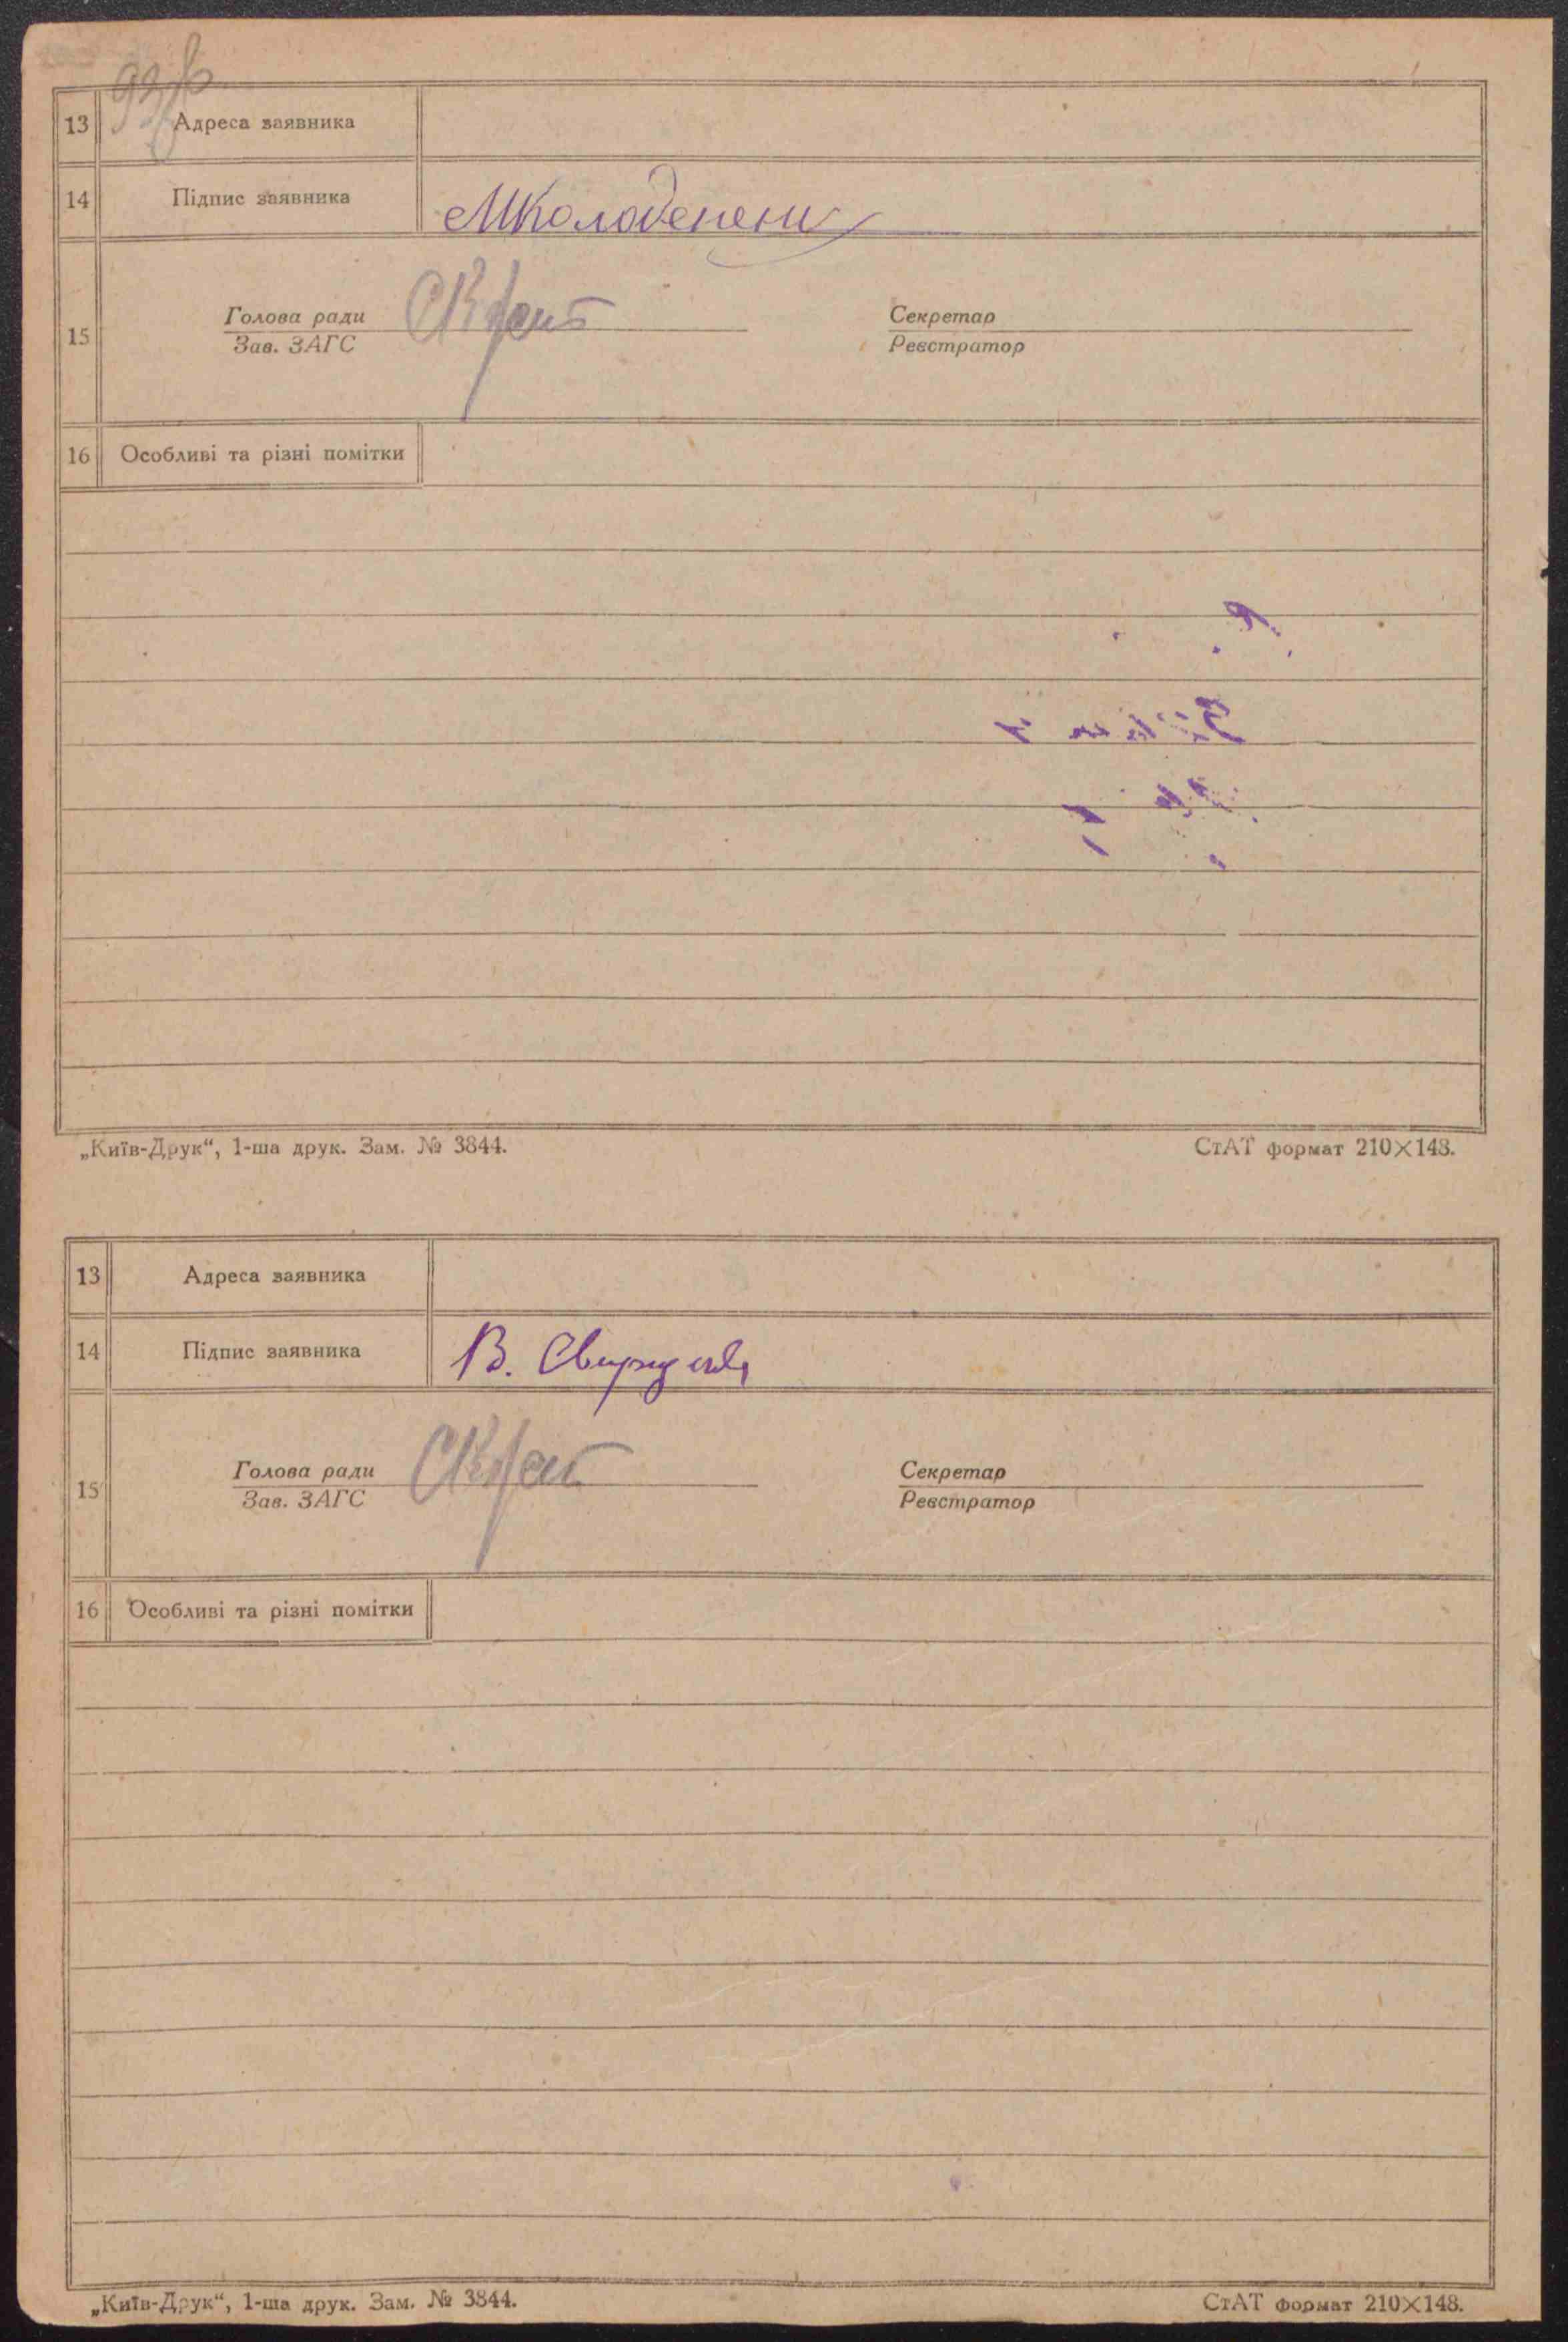 13 Адреса заявника
14 Підпис заявника
15 Голова ради Секретар
Зав. ЗАГС Реєстратор
16 Особливі та різні помітки
„Київ-Друк“, 1-ша друк. Зам. № 3844. СтАТ формат 210×148.
13 Адреса заявника
14 Підпис заявника В.
15 Голова ради Секретар
Зав. ЗАГС Реєстратор
16 Особливі та різні помітки
„Київ-Друк“, 1-ша друк. Зам. № 3844. СтАТ формат 210×148.